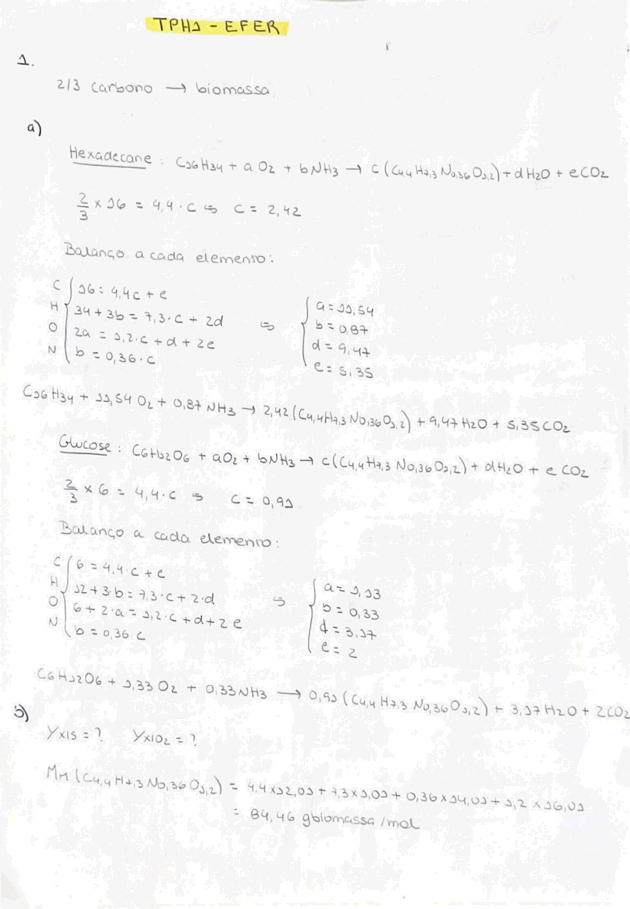 TPH1 - EFER
1.
2/3 carbono → biomassa
a)
Hexadecane : C16H34 + a O2 + b NH3 → c (C4,4 H7,3 N0,36 O1,2) + d H2O + e CO2
2/3 × 16 = 4,4 · c ⇔ c = 2,42
Balanço a cada elemento :
C { 16 = 4,4c + e
H 34 + 3b = 7,3 · c + 2d
O 2a = 1,2 · c + d + 2e
N b = 0,36 · c
⇔ { a = 11,54
b = 0,87
d = 9,47
e = 5,35
C16H34 + 11,54 O2 + 0,87 NH3 → 2,42 (C4,4H7,3 N0,36 O1,2) + 9,47 H2O + 5,35 CO2
Glucose : C6H12O6 + a O2 + b NH3 → c (C4,4 H7,3 N0,36 O1,2) + d H2O + e CO2
2/3 × 6 = 4,4 · c ⇔ c = 0,91
Balanço a cada elemento :
C { 6 = 4,4 · c + e
H 12 + 3 · b = 7,3 · c + 2 · d
O 6 + 2 · a = 1,2 · c + d + 2 e
N b = 0,36 c
⇔ { a = 1,13
b = 0,33
d = 3,17
e = 2
C6H12O6 + 1,13 O2 + 0,33 NH3 → 0,91 (C4,4 H7,3 N0,36 O1,2) + 3,17 H2O + 2 CO2
b)
Yx/s = ? Yx/O2 = ?
Mm (C4,4 H7,3 N0,36 O1,2) = 4,4 × 12,01 + 7,3 × 1,01 + 0,36 × 14,01 + 1,2 × 16,01
= 84,46 gbiomassa /mol